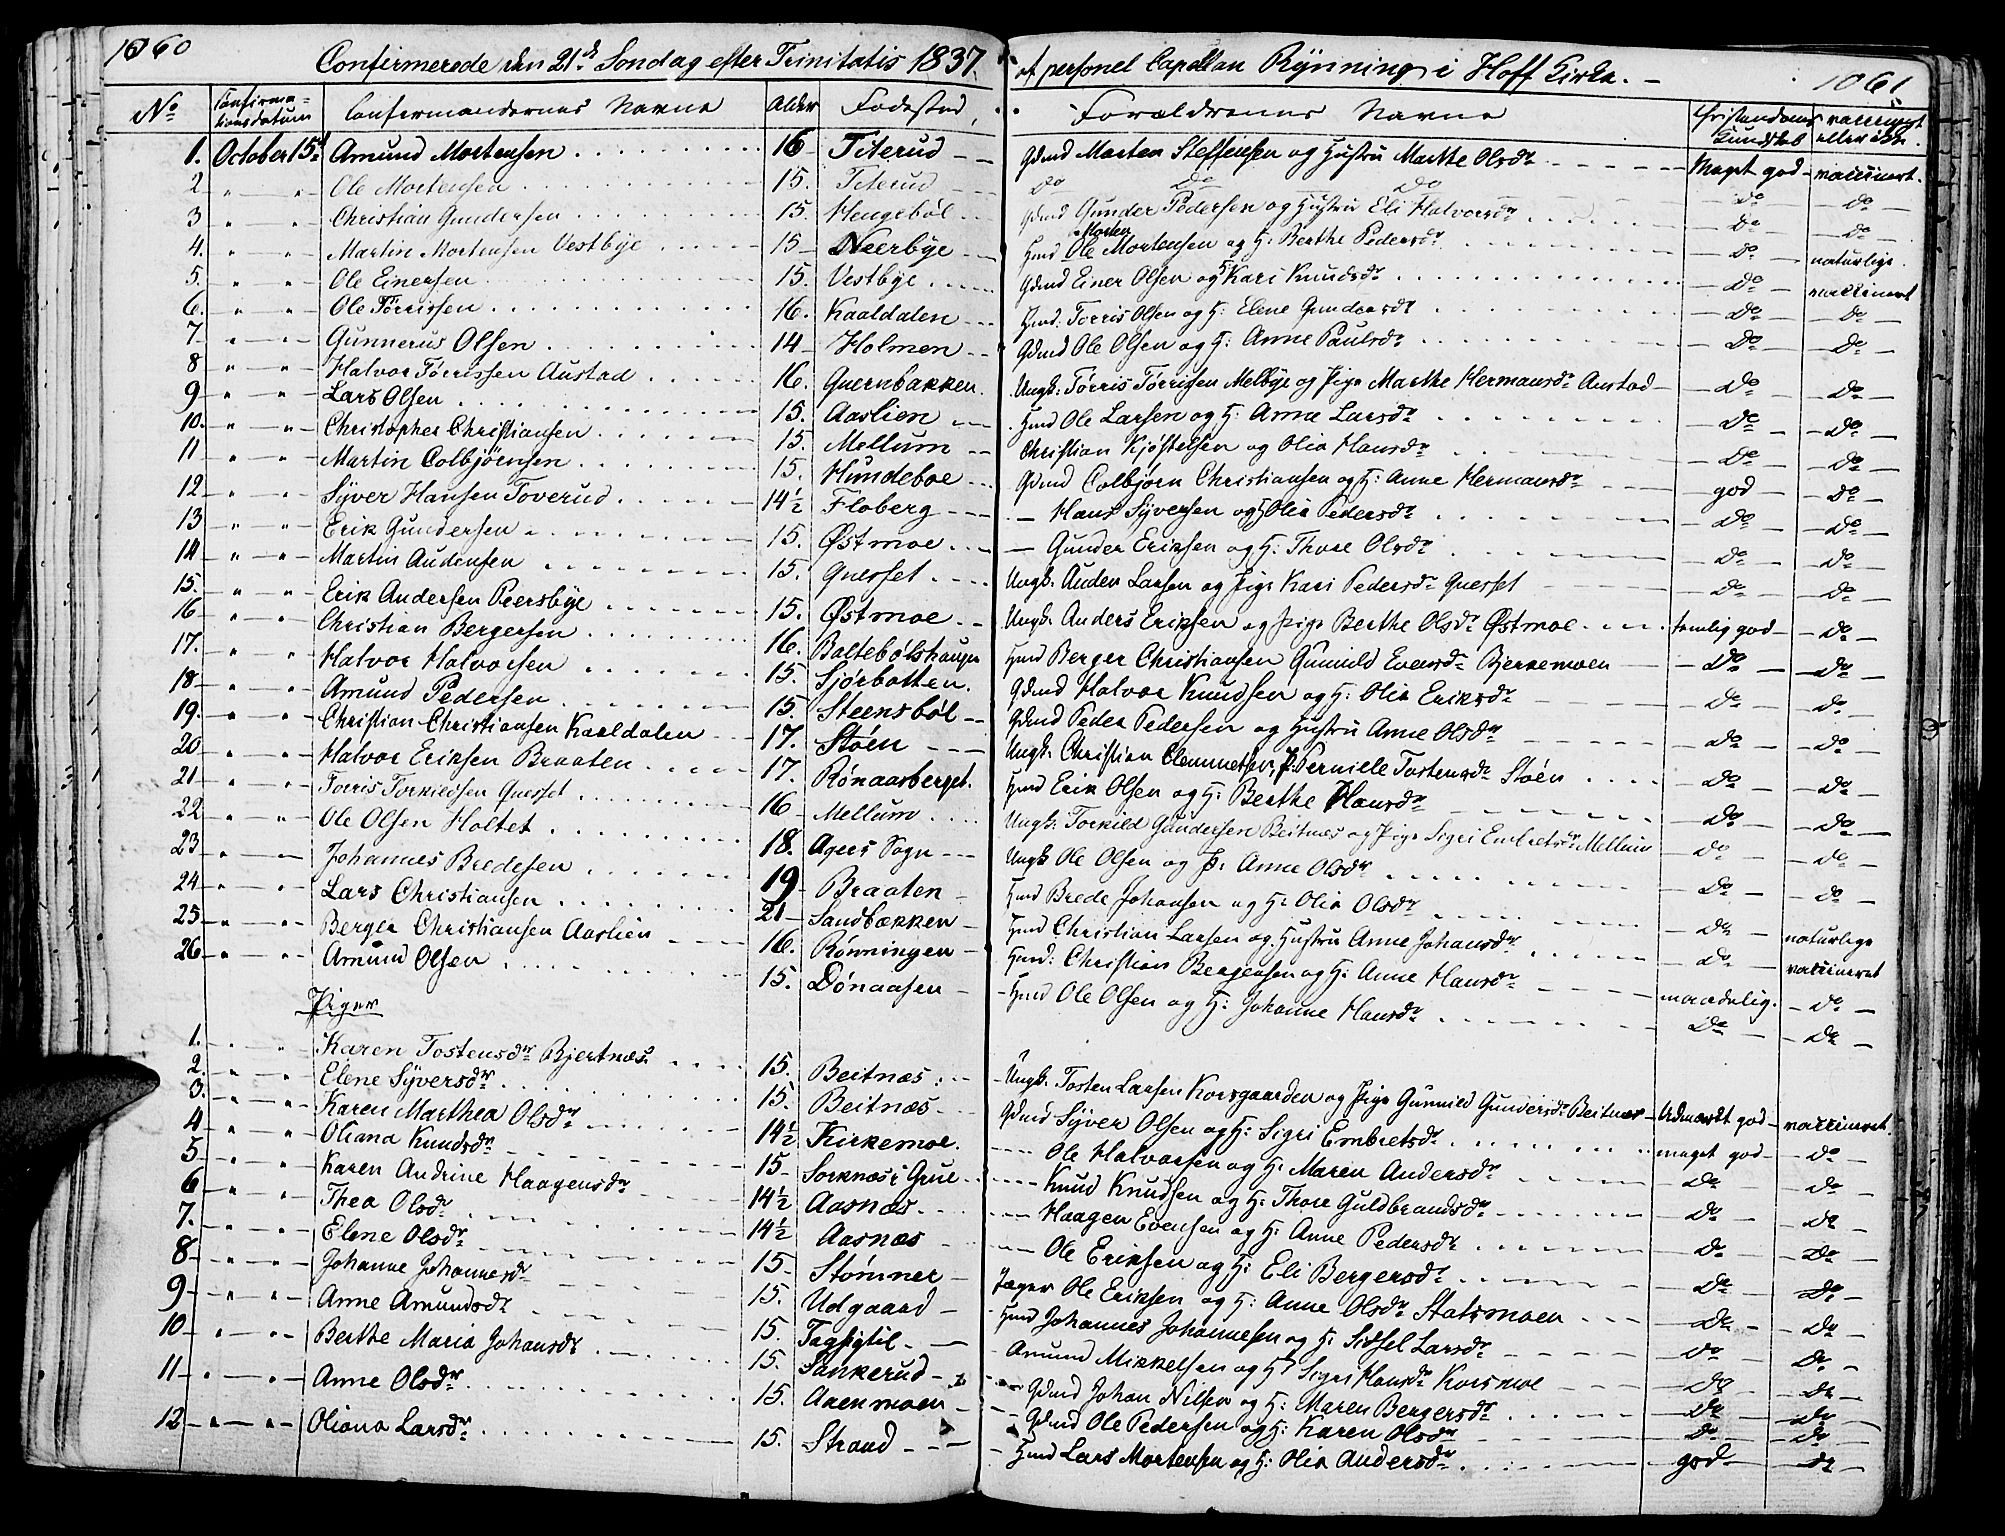 1060
Confirmerede den 21de Søndag efter Trinitatis 1837. af personel Capellan Rynning i Hoff Kirke.
1061
No Confirmationsdatum Confermandernes Navne Alder Fødested Forældrenes Navne Christendoms Kundskab vaccineret eller ikke
1. October 15de Amund Mortensen 16 Titerud Gdmd Morten Steffensen og Hustru Marthe Olsdr Meget god vaccineret.
2 " " Ole Mortensen 15. Titerud Do Do Do Do Do
3 " " Christian Gundersen 15. Hengebøl Gdmd Gunder Pedersen og Hustru Eli Halvorsdr Do Do
4. " " Martin Mortensen Vestbye 15 Neerbye Hmd Ole Morten Mortensen og H: Berthe Pedersdr Do naturlige.
5. " " Ole Einersen 15. Vestbye Gdmd Einer Olsen og H: Kari Knudsdr Do vaccineret
6. " " Ole Tørrissen 16. Kaaldalen Hmd: Torris Olsen og H: Elene Gundersdr Do Do
7 " " Gunnerus Olsen 14 Holmen Gdmd Ole Olsen og H: Anne Paulsdr Do Do
8 " " Halvor Tørrissen Austad 16. Quernbakken. Ungk: Tørris Tørrissen Melbye og Pige Marthe Hermansdr Austad Do Do
9 " " Lars Olsen 15. Aaslien Hmd Ole Larsen og H: Anne Larsdr Do Do
10. " " Christopher Christiansen 15. Mellum Christian Kjøstelsen og Olia Hansdr Do Do
11 " " Martin Colbjörnsen 15. Hundeboe Gdmd Colbjørn Christiansen og H: Anne Hermansdr god Do
12 " " Syver Hansen Toverud 14½ Floberg — Hans Syversen og H: Olia Pedersdr Do Do
13 " " Erik Gundersen 15. Østmoe — Gunder Eriksen og H: Thore Olsdr Do Do
14 " " Martin Audensen 15. Quesset Ungk. Auden Larsen og Pige Kari Pedersdr Quesset Do Do
15. " " Erik Andersen Peersbye 15. Østmoe Ungk. Anders Eriksen og Pige Berthe Olsdr Østmoe temlig god Do
16 " " Christian Bergersen 16. Baltebølshaugen Hmd Berger Christiansen Gunnild Evensdr Bjerkemoen Do Do
17. " " Halvor Halvorsen 15. Sjørbotten. Gdmd Halvor Knudsen og H: Olia Eriksdr Do Do
18 " " Amund Pedersen 15. Steensbøl Gdmd Peder Pedersen og Hustru Anne Olsdr Do Do
19. " " Christian Christiansen Kaaldalen 17. Støen Ungk. Christian Clemmetsen, P. Perniele Tostensdr Støen Do Do
20 " " Halvor Eriksen Braaten 17. Rønaasberget. Hmd Erik Olsen og H: Berthe Hansdr Do Do
21 " " Torris Torkildsen Quesset 16 Mellum Ungk: Torkild Gundersen Beitnes og Pige Sigri Embretsdr Mellum Do Do
22 " " Ole Olsen Holtet 18. Agers Sogn Ungk Ole Olsen og P. Anne Olsdr Do Do
23 " " Johannes Bredesen 19 Braaten Hmd Brede Johansen og H: Olia Olsdr Do naturlige
24 " " Lars Christiansen 21 Sandbækken Hmd Christian Larsen og Hustru Anne Johansdr Do vaccineret
25 " " Berger Christiansen Aaslien 16. Rønningen Hmd: Christian Bergersen og H: Anne Hansdr maadelig. Do
26 " " Amund Olsen 15. Dønaasen Hmd Ole Olsen og H: Johanne Hansdr Do Do
Piger
1. " " Karen Tostensdr Bjertnæs 15. Beitnæs Ungk. Tosten Larsen Korsgaarden og Pige Gunnild Gundersdr Beitnæs Udmærkt god vaccineret.
2. " " Elene Syversdr 15. Beitnæs Gdmd Syver Olsen og H: Sigri Embretsdr meget god Do
3. " " Karen Marthea Olsdr 14½ Kirkemoe. — Ole Halvorsen og H: Maren Andersdr Do Do
4 " " Oliana Knudsdr 15 Sorknæs i Grue — Knud Knudsen og H: Thore Guldbrandsdr Do Do
5 " " Karen Andrine Haagensdr 14½ Aasnæs — Haagen Evensen og H: Anne Pedersdr Do Do
6 " " Thea Olsdr 14½ Aasnæs — Ole Eriksen og H: Eli Bergersdr Do Do
7. " " Elene Olsdr 15 Stømner Jæger Ole Eriksen og H: Anne Olsdr Statsmoen Do Do
8 " " Johanne Johannesdr 15. Udgaard Hmd Johannes Johannesen og H: Sidsel Larsdr Do Do
9 " " Anne Amundsdr 15. Tagsigtil Amund Mikkelsen og H: Sigri Hansdr Korsmoe Do Do
10 " " Berthe Maria Johansdr 15. Sankerud Gdmd Johan Nilsen og H: Maren Bergersdr Do Do
11 " " Anne Olsdr 15. Aaenmoen Gdmd Ole Pedersen og H: Karen Olsdr Do Do
12 " " Oliana Larsdr 15. Strand Hmd Lars Mortensen og H: Olia Andersdr god Do